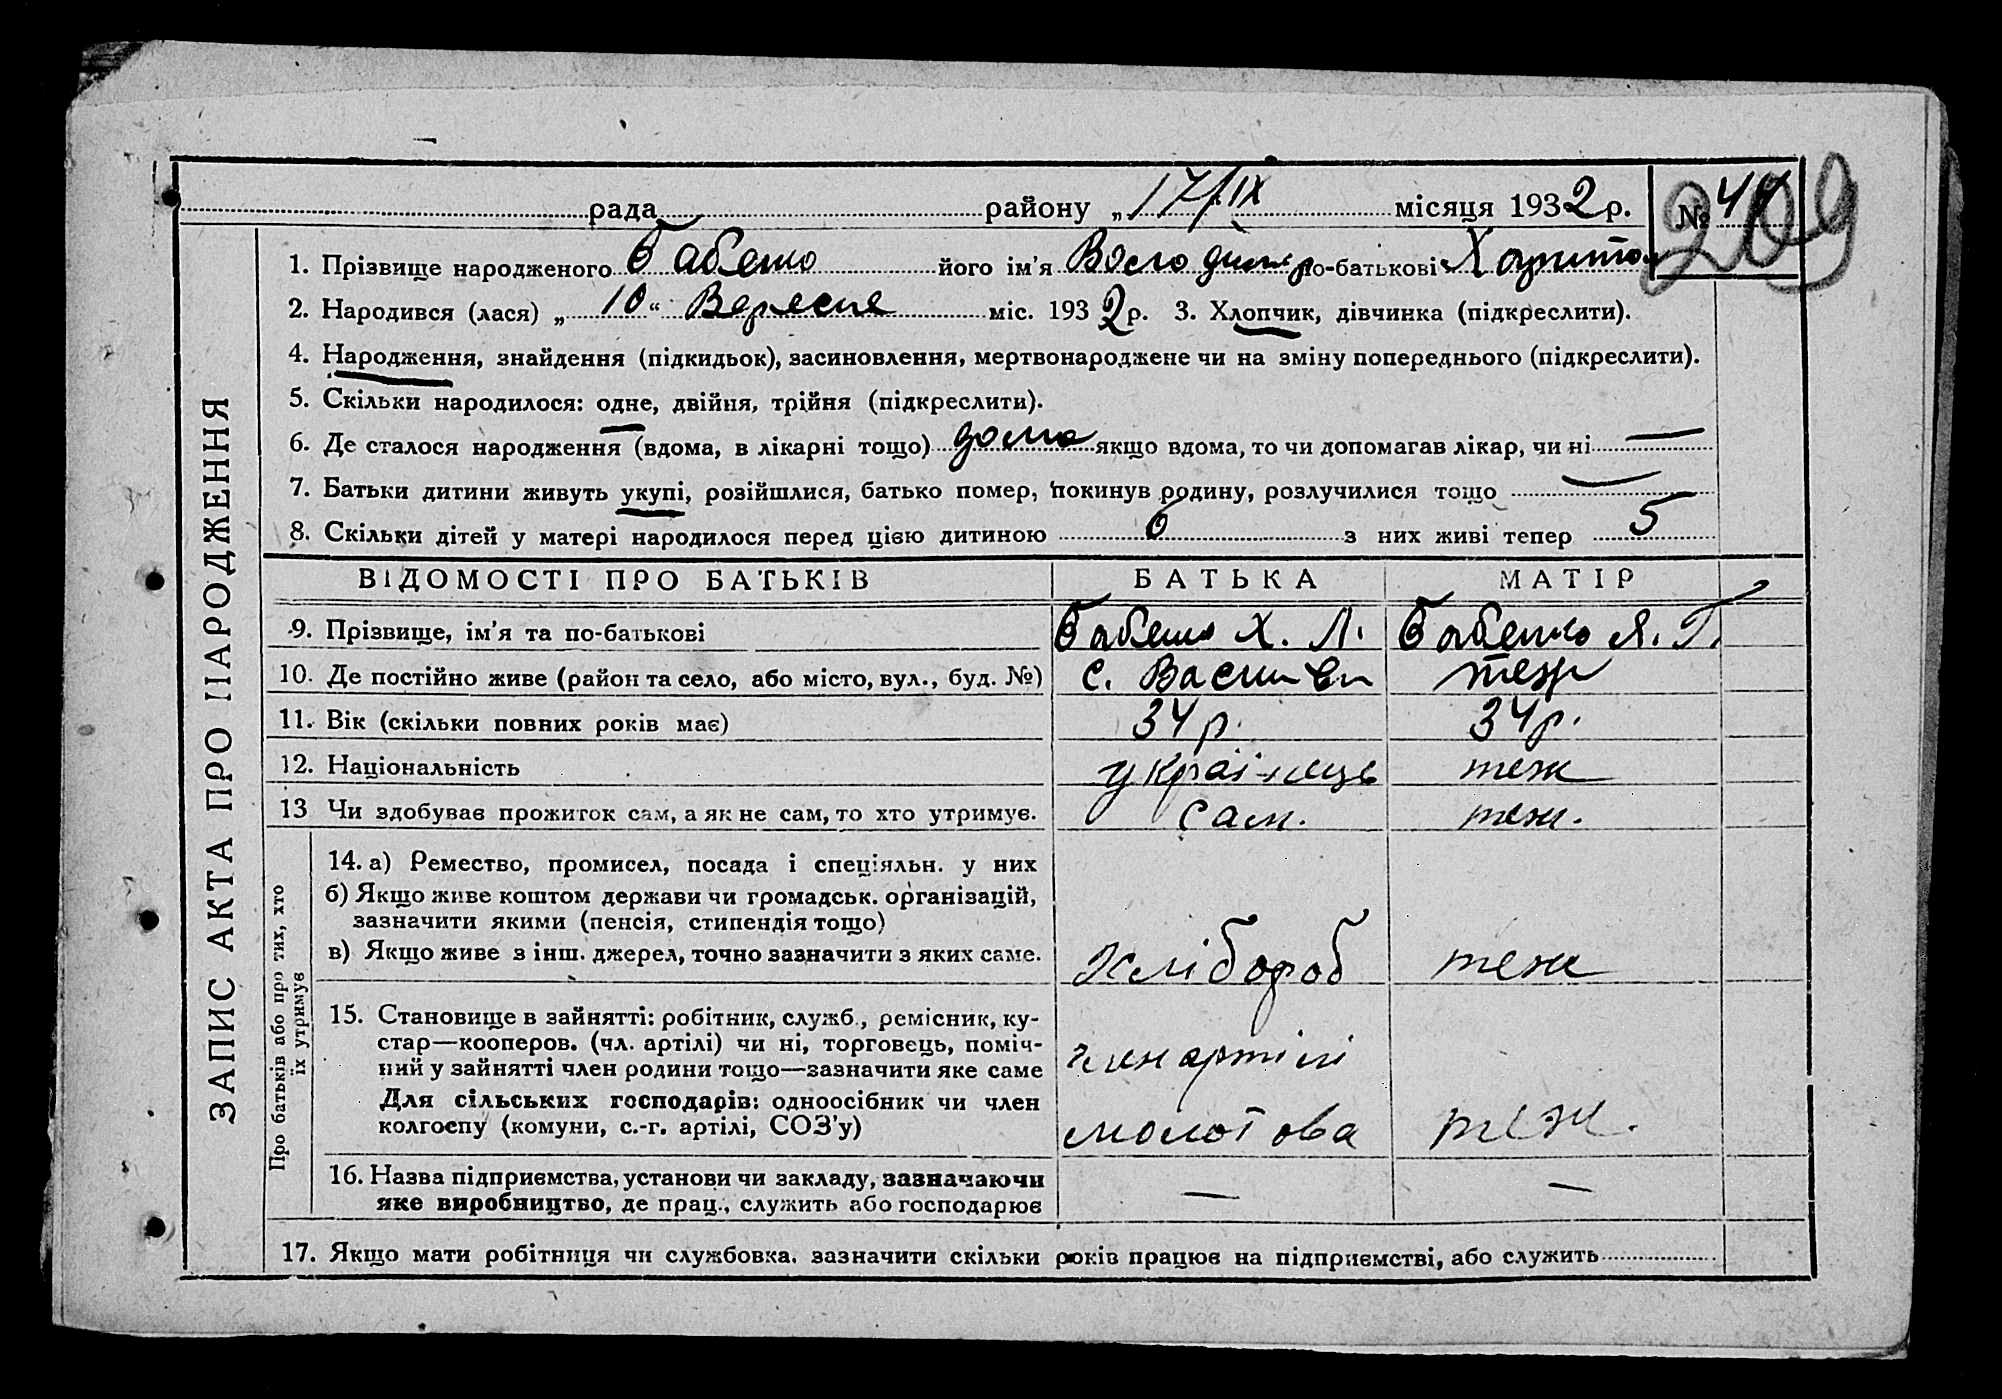 рада району „17/IX місяця 1932 р. № 44
209
1. Прізвище народженого Бабенко його ім’я Володимир по-батькові Харитон
2. Народився (лася) „10“ Вересня міс. 1932 р. 3. Хлопчик, дівчинка (підкреслити).
4. Народження, знайдення (підкидьок), засиновлення, мертвонароджене чи на зміну попереднього (підкреслити).
5. Скільки народилося: одне, двійня, трійня (підкреслити).
6. Де сталося народження (вдома, в лікарні тощо) дома якщо вдома, то чи допомагав лікар, чи ні —
7. Батьки дитини живуть укупі, розійшлися, батько помер, покинув родину, розлучилися тощо —
8. Скільки дітей у матері народилося перед цією дитиною 6 з них живі тепер 5
ЗАПИС АКТА ПРО НАРОДЖЕННЯ
ВІДОМОСТІ ПРО БАТЬКІВ БАТЬКА МАТІР
9. Прізвище, ім’я та по-батькові Бабенко Х. Л. Бабенко Я. Г.
10. Де постійно живе (район та село, або місто, вул., буд. №) с. теж
11. Вік (скільки повних років має) 34 р. 34 р.
12. Національність українець теж
13 Чи здобуває прожиток сам, а як не сам, то хто утримує. сам. теж.
Про батьків або про тих, хто
їх утримує
14. а) Ремество, промисел, посада і спеціяльн. у них
б) Якщо живе коштом держави чи громадськ. організацій,
зазначити якими (пенсія, стипендія тощо)
в) Якщо живе з інш. джерел, точно зазначити з яких саме. Хлібороб теж
15. Становище в зайнятті: робітник, служб., ремісник, ку-
стар—кооперов. (чл. артілі) чи ні, торговець, поміч- член артілі
ний у зайнятті член родини тощо—зазначити яке саме
Для сільських господарів: одноосібник чи член
колгоспу (комуни, с.-г. артілі, СОЗ’у) молотова теж.
16. Назва підприємства, установи чи закладу, зазначаючи
яке виробництво, де прац., служить або господарює — —
17. Якщо мати робітниця чи службовка, зазначити скільки років працює на підприємстві, або служить